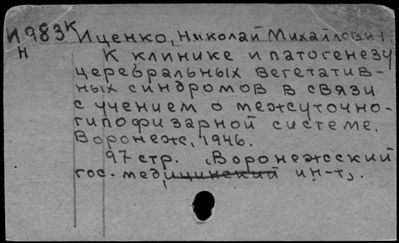 И983К Иценко, Николай Михайлович
Н К клинике и патогенезу
церебральных вегетатив-
ных синдромов в связи
с учением о межуточно-
гипофизарной системе.
Воронеж, 1946.
97 стр. (Воронежсский
гос. медицинский ин-т).